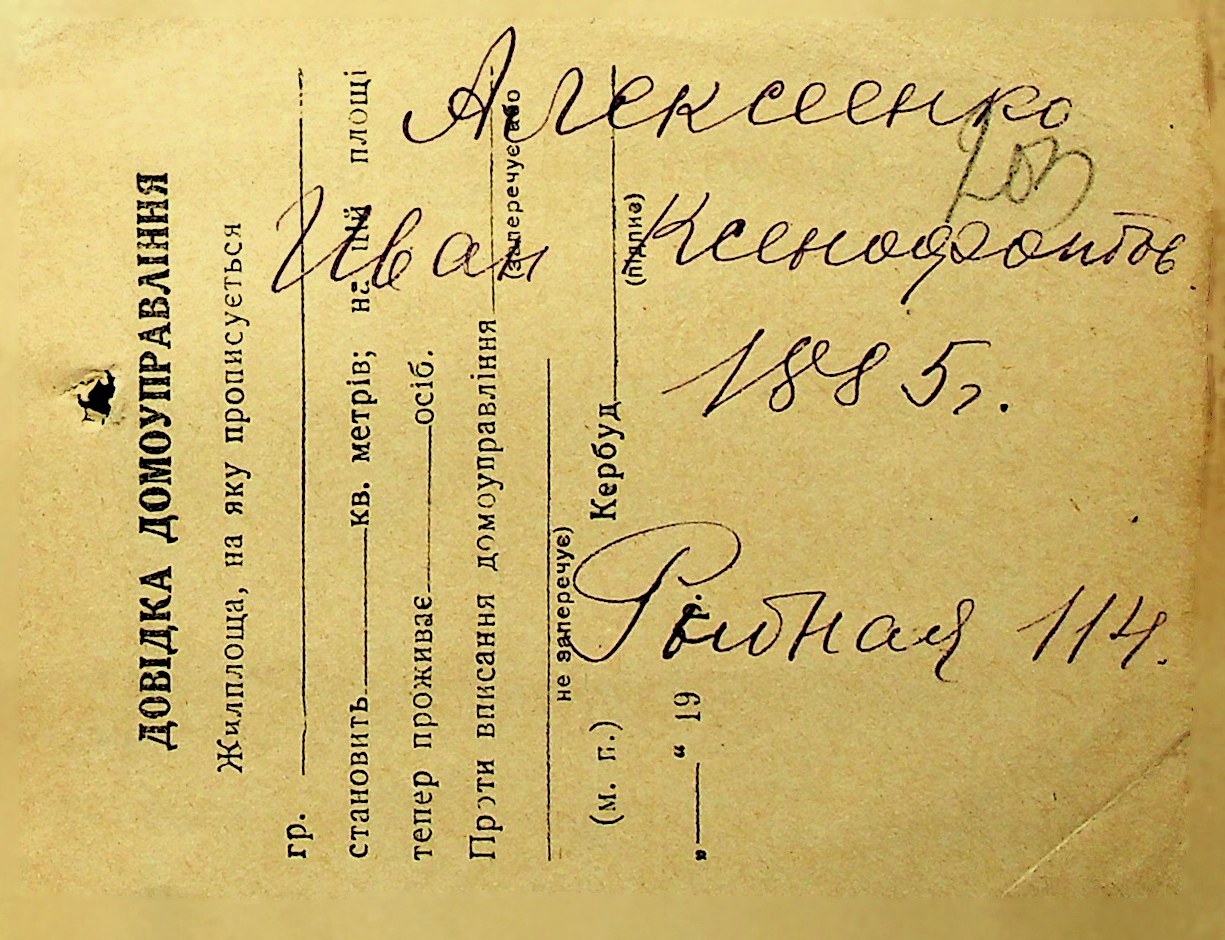 ДОВІДКА ДОМОУПРАВЛІННЯ
Жилплоща, на яку прописується
гр.
становить кв. метрів; на цій площі
тепер проживає осіб.
Проти вписання домоуправління
(заперечує або
не заперечує)
(м. п.) Кербуд
(підпис)
„ “ 19 р.
Алексеенко
Иван Ксенофонтов
1885г.
Рыбная 114.